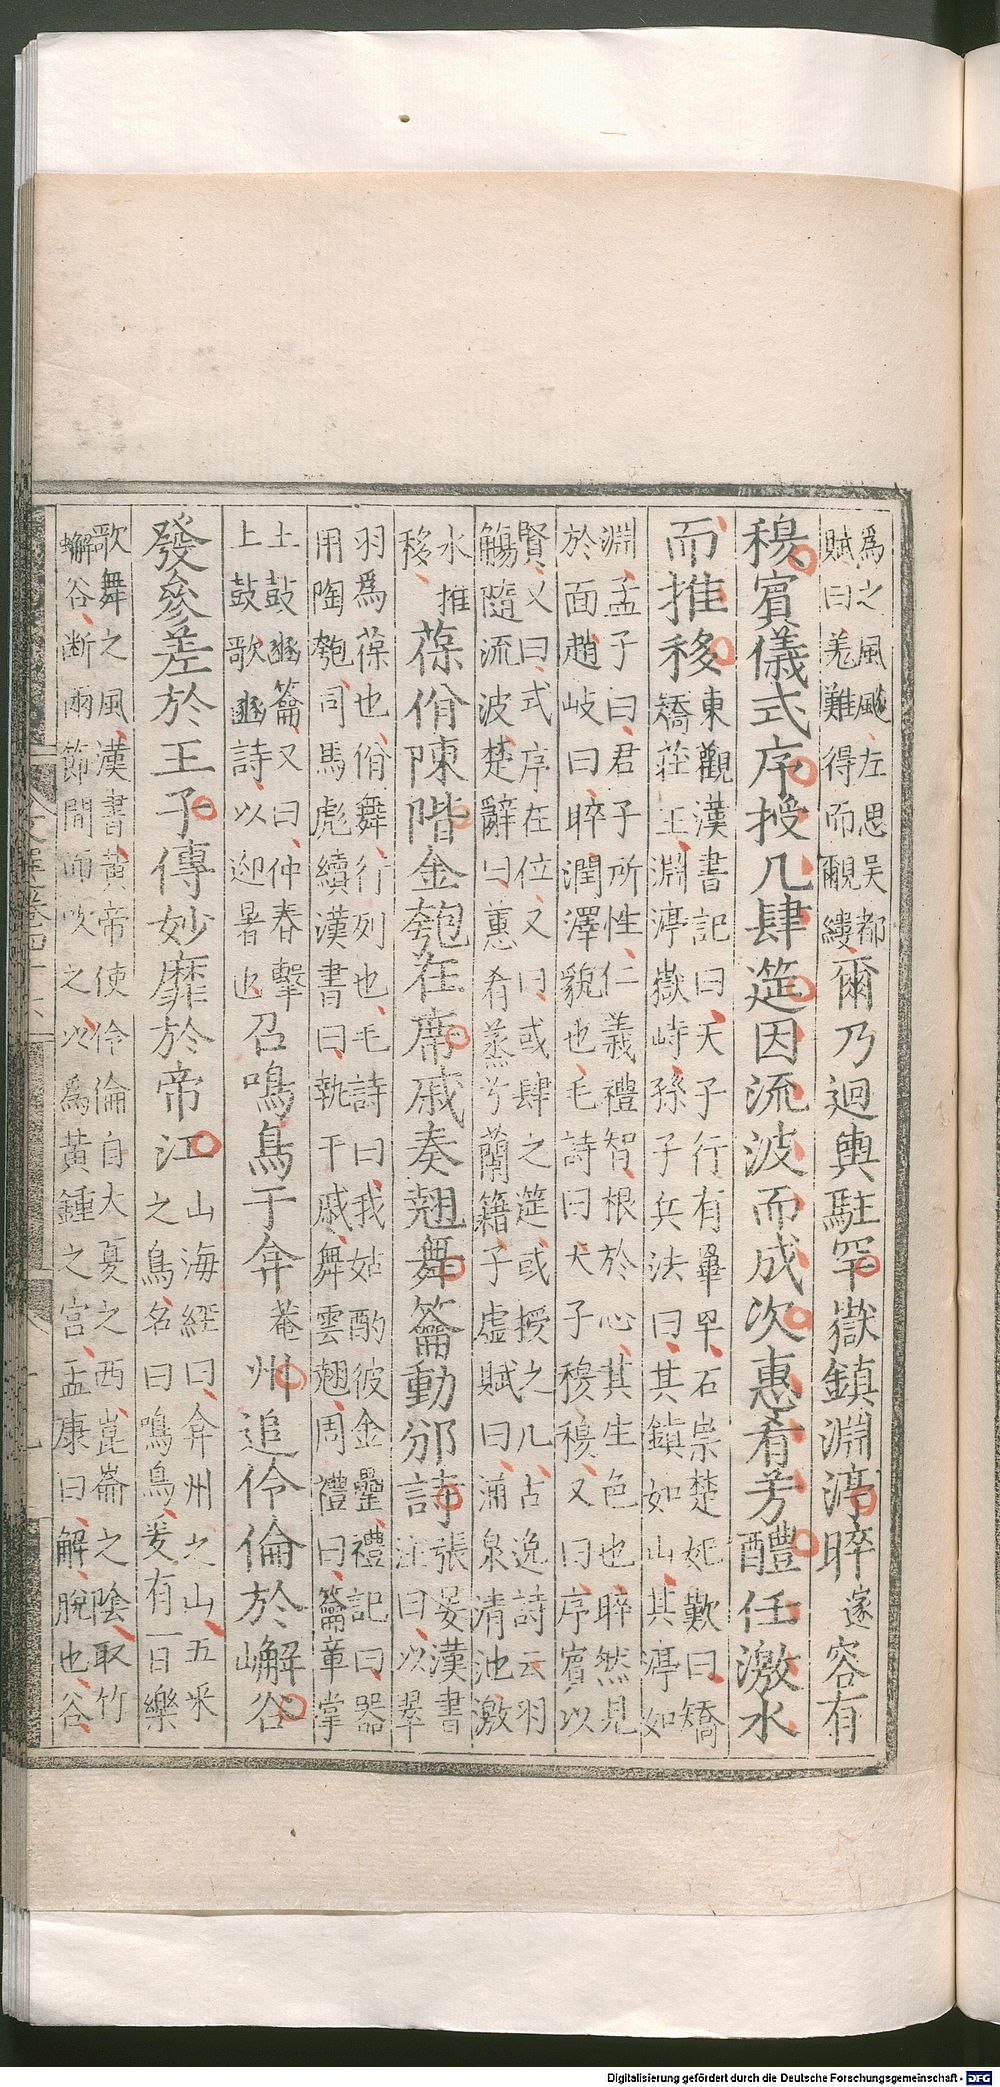 為之風颺左思吳都
賦曰羌難得而覼縷
爾乃迴輿駐罕嶽鎮淵渟睟遂容有
穆賓儀式序授几肆筵因流波而成次惠肴芳醴任激水
而推移
東觀漢書記曰天子行有罼罕石崇楚妃歎曰矯
矯莊王淵渟嶽峙孫子兵法曰其鎮如山其渟如
淵孟子曰君子所性仁義禮智根於心其生色也睟然見
於面趙岐曰睟潤澤貌也毛詩曰天子穆穆又曰序賓以
賢又曰式序在位又曰或肆之筵或授之几占逸詩云羽
觴隨流波楚辭曰蕙肴蒸兮蘭籍子虛賦曰涌泉清池激
水推
移
葆佾陳階金匏在席戚奏翹舞籥動邠詩
張晏漢書
注曰以翠
羽為葆也佾舞行列也毛詩曰我姑酌彼金罍禮記曰器
用陶匏司馬彪續漢書曰執干戚舞雲翹周禮曰籥章掌
土鼓豳籥又曰仲春擊
上鼓歌豳詩以迎暑也
召鳴鳥于弇菴州追伶倫於嶰谷
發參差於王子傳妙靡於帝江
山海經曰弇州之山五采
之鳥名曰鳴鳥爰有一日樂
歌舞之風漢書黃帝使伶倫自大夏之西崑崙之陰取竹
嶰谷斷兩節間而吹之以為黃鍾之宮孟康曰解脫也谷
Digitalisierung gefördert durch die Deutsche Forschungsgemeinschaft - DFG